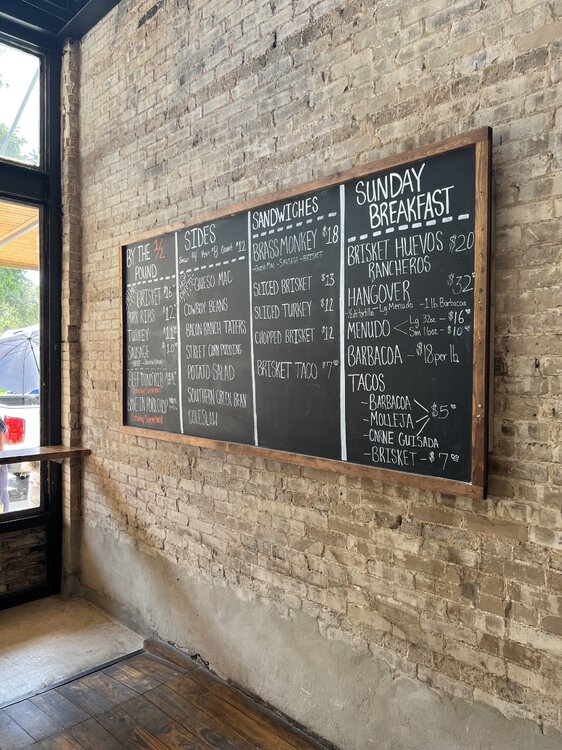 BY THE 1/2
POUND
BRISKET $16
PORK RIBS $12
TURKEY $11
SAUSAGE $10
BEEF DINO RIB
BONE IN PORK CHOP
SIDES
Small $4 Pint $8 Quart $12
QUESO MAC
COWBOY BEANS
BACON RANCH TATERS
STREET CORN PUDDING
POTATO SALAD
SOUTHERN GREEN BEAN
COLESLAW
SANDWICHES
BRASS MONKEY $18
-QUESO MAC - SAUSAGE - BRISKET
SLICED BRISKET $13
SLICED TURKEY $12
CHOPPED BRISKET $12
BRISKET TACO $7
SUNDAY
BREAKFAST
BRISKET HUEVOS $20
RANCHEROS
HANGOVER $32
-Lg Menudo - 1 lb Barbacoa
MENUDO Lg 32oz - $16
Sm 16oz - $10
BARBACOA - $18 per lb
TACOS
-BARBACOA
-MOLLEJA $5
-CARNE GUISADA
-BRISKET - $7